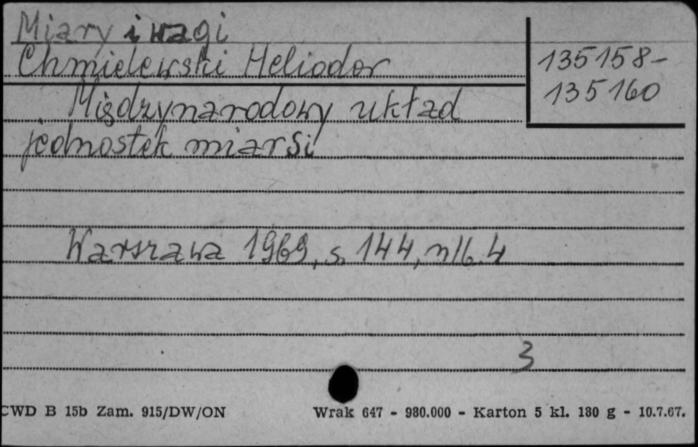 Miary i wagi
Chmielewski Heliodor
135158-
135160
Międzynarodowy układ
jednostek miar Si
Warszawa 1969, s. 144, nlb. 4
3
CWD B 15b Zam. 915/DW/ON
Wrak 647 - 980.000 - Karton 5 kl. 180 g - 10.7.67.